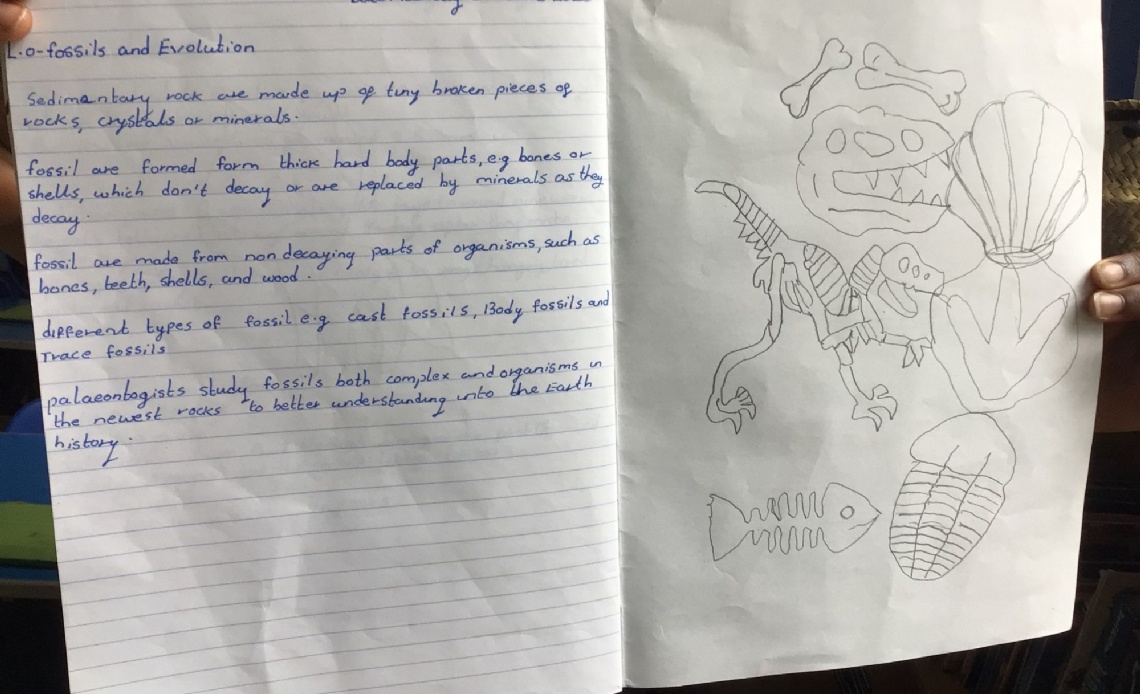 L.o-fossils and Evolution
Sedimentary rock are made up of tiny broken pieces of
rocks, crystals or minerals.
fossil are formed form thick hard body parts, e.g bones or
shells, which don't decay or are replaced by minerals as they
decay.
fossil are made from non decaying parts of organisms, such as
bones, teeth, shells, and wood.
different types of fossil e.g cast fossils, Body fossils and
Trace fossils
palaeontogists study fossils both complex and organisms in
the newest rocks to better understanding into the Earth
history.